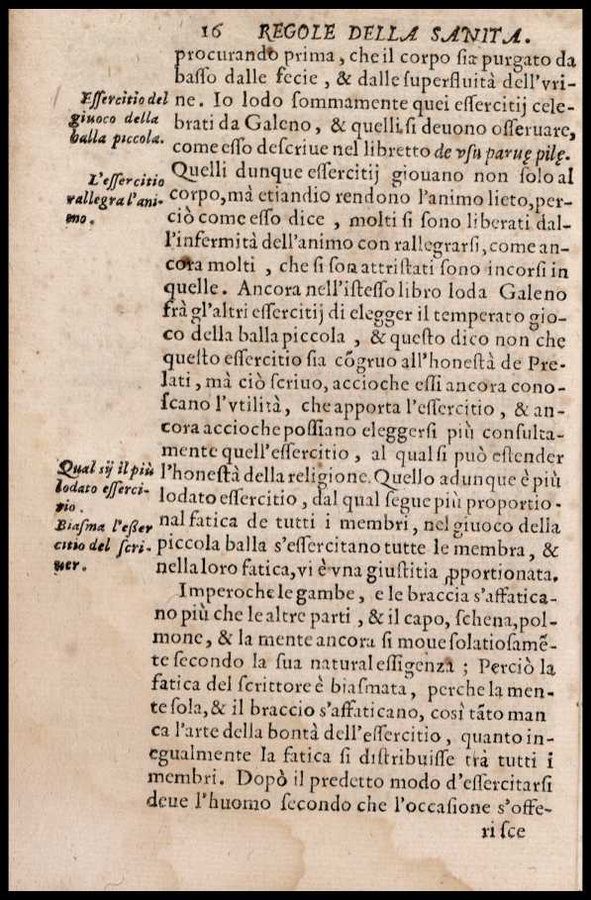 16 REGOLE DELLA SANITA.
procurando prima, che il corpo ſia purgato da
baſſo dalle fecie, & dalle ſuperfluità dell'vri-
Eſſercitio del
giuoco della
balla piccola.
ne. Io lodo ſommamente quei eſſercitij cele-
brati da Galeno, & quelli ſi deuono oſſeruare,
come eſſo deſcriue nel libretto de vſu paruę pilę.
L'eſſercitio
rallegra l'ani-
mo.
Quelli dunque eſſercitij giouano non ſolo al
corpo, mà etiandio rendono l'animo lieto, per-
ciò come eſſo dice, molti ſi ſono liberati dal-
l'infermità dell'animo con rallegrarſi, come an-
cora molti, che ſi ſon attriſtati ſono incorſi in
quelle. Ancora nell'iſteſſo libro loda Galeno
frà gl'altri eſſercitij di elegger il temperato gio-
co della balla piccola, & queſto dico non che
queſto eſſercitio ſia cõgruo all'honeſtà de Pre-
lati, mà ciò ſcriuo, accioche eſſi ancora cono-
ſcano l'vtilità, che apporta l'eſſercitio, & an-
cora accioche poſſiano eleggerſi più conſulta-
mente quell'eſſercitio, al qual ſi può eſtender
Qual sij il più
lodato eſſerci-
tio.
Biaſma l'eßer
citio del ſcri-
uer.
l'honeſtà della religione. Quello adunque è più
lodato eſſercitio, dal qual ſegue più proportio-
nal fatica de tutti i membri, nel giuoco della
piccola balla s'eſſercitano tutte le membra, &
nella loro fatica, vi è vna giuſtitia ꝓportionata.
Imperoche le gambe, e le braccia s'affatica-
no più che le altre parti, & il capo, ſchena, pol-
mone, & la mente ancora ſi moue ſolatioſamẽ-
te ſecondo la ſua natural eſſigenza; Perciò la
fatica del ſcrittore è biaſmata, perche la men-
te ſola, & il braccio s'affaticano, così tãto man
ca l'arte della bontà dell'eſſercitio, quanto in-
egualmente la fatica ſi diſtribuiſſe trà tutti i
membri. Dopò il predetto modo d'eſſercitarſi
deue l'huomo ſecondo che l'occaſione s'offe-
riſce